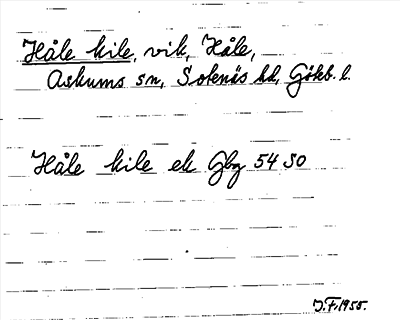 Håle kile, vik, Håle,
Askums sn, Sotenäs hd, Göteb. l.
Håle kile ek Gbg 54 SO
J.F. 1955.